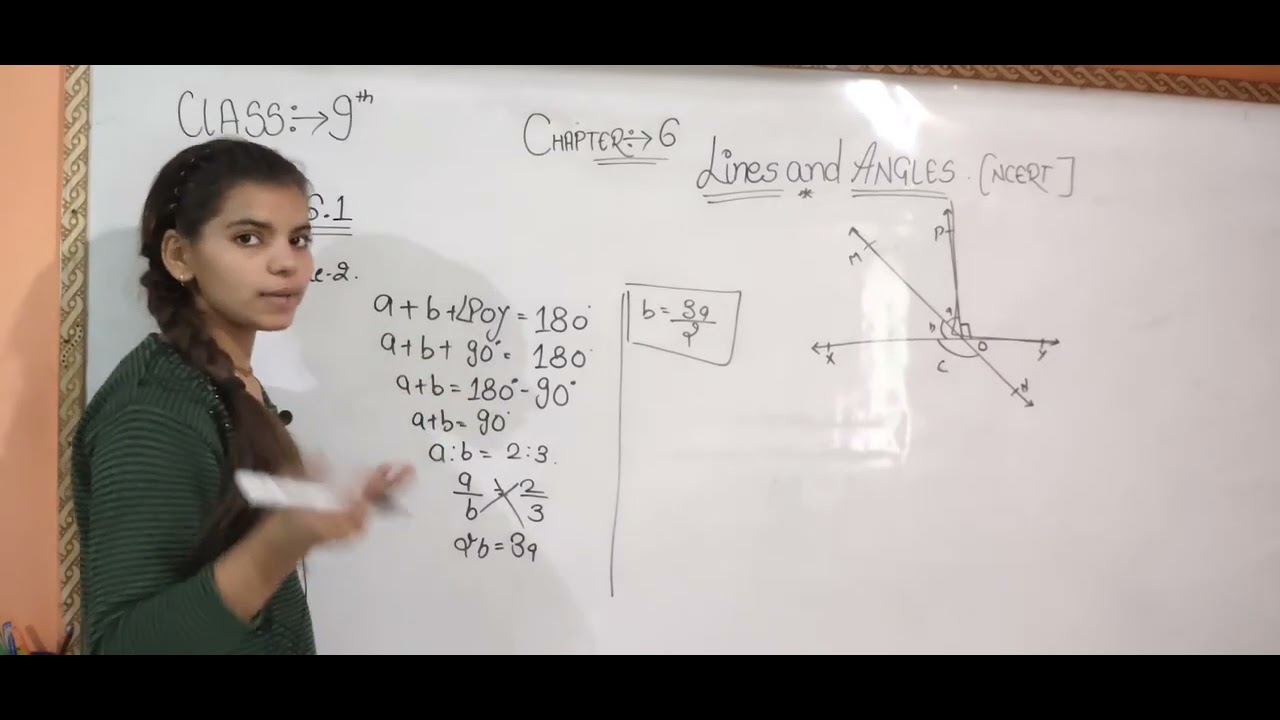 CLASS:→9th
CHAPTER:→6
Lines and ANGLES. [NCERT]
6.1
e-2.
a+b+∠POY=180°
a+b+90°=180°
a+b=180°-90°
a+b=90°
a:b=2:3.
a/b=2/3
2b=3a
b=3a/2
P
M
a
b
O
X
Y
C
N